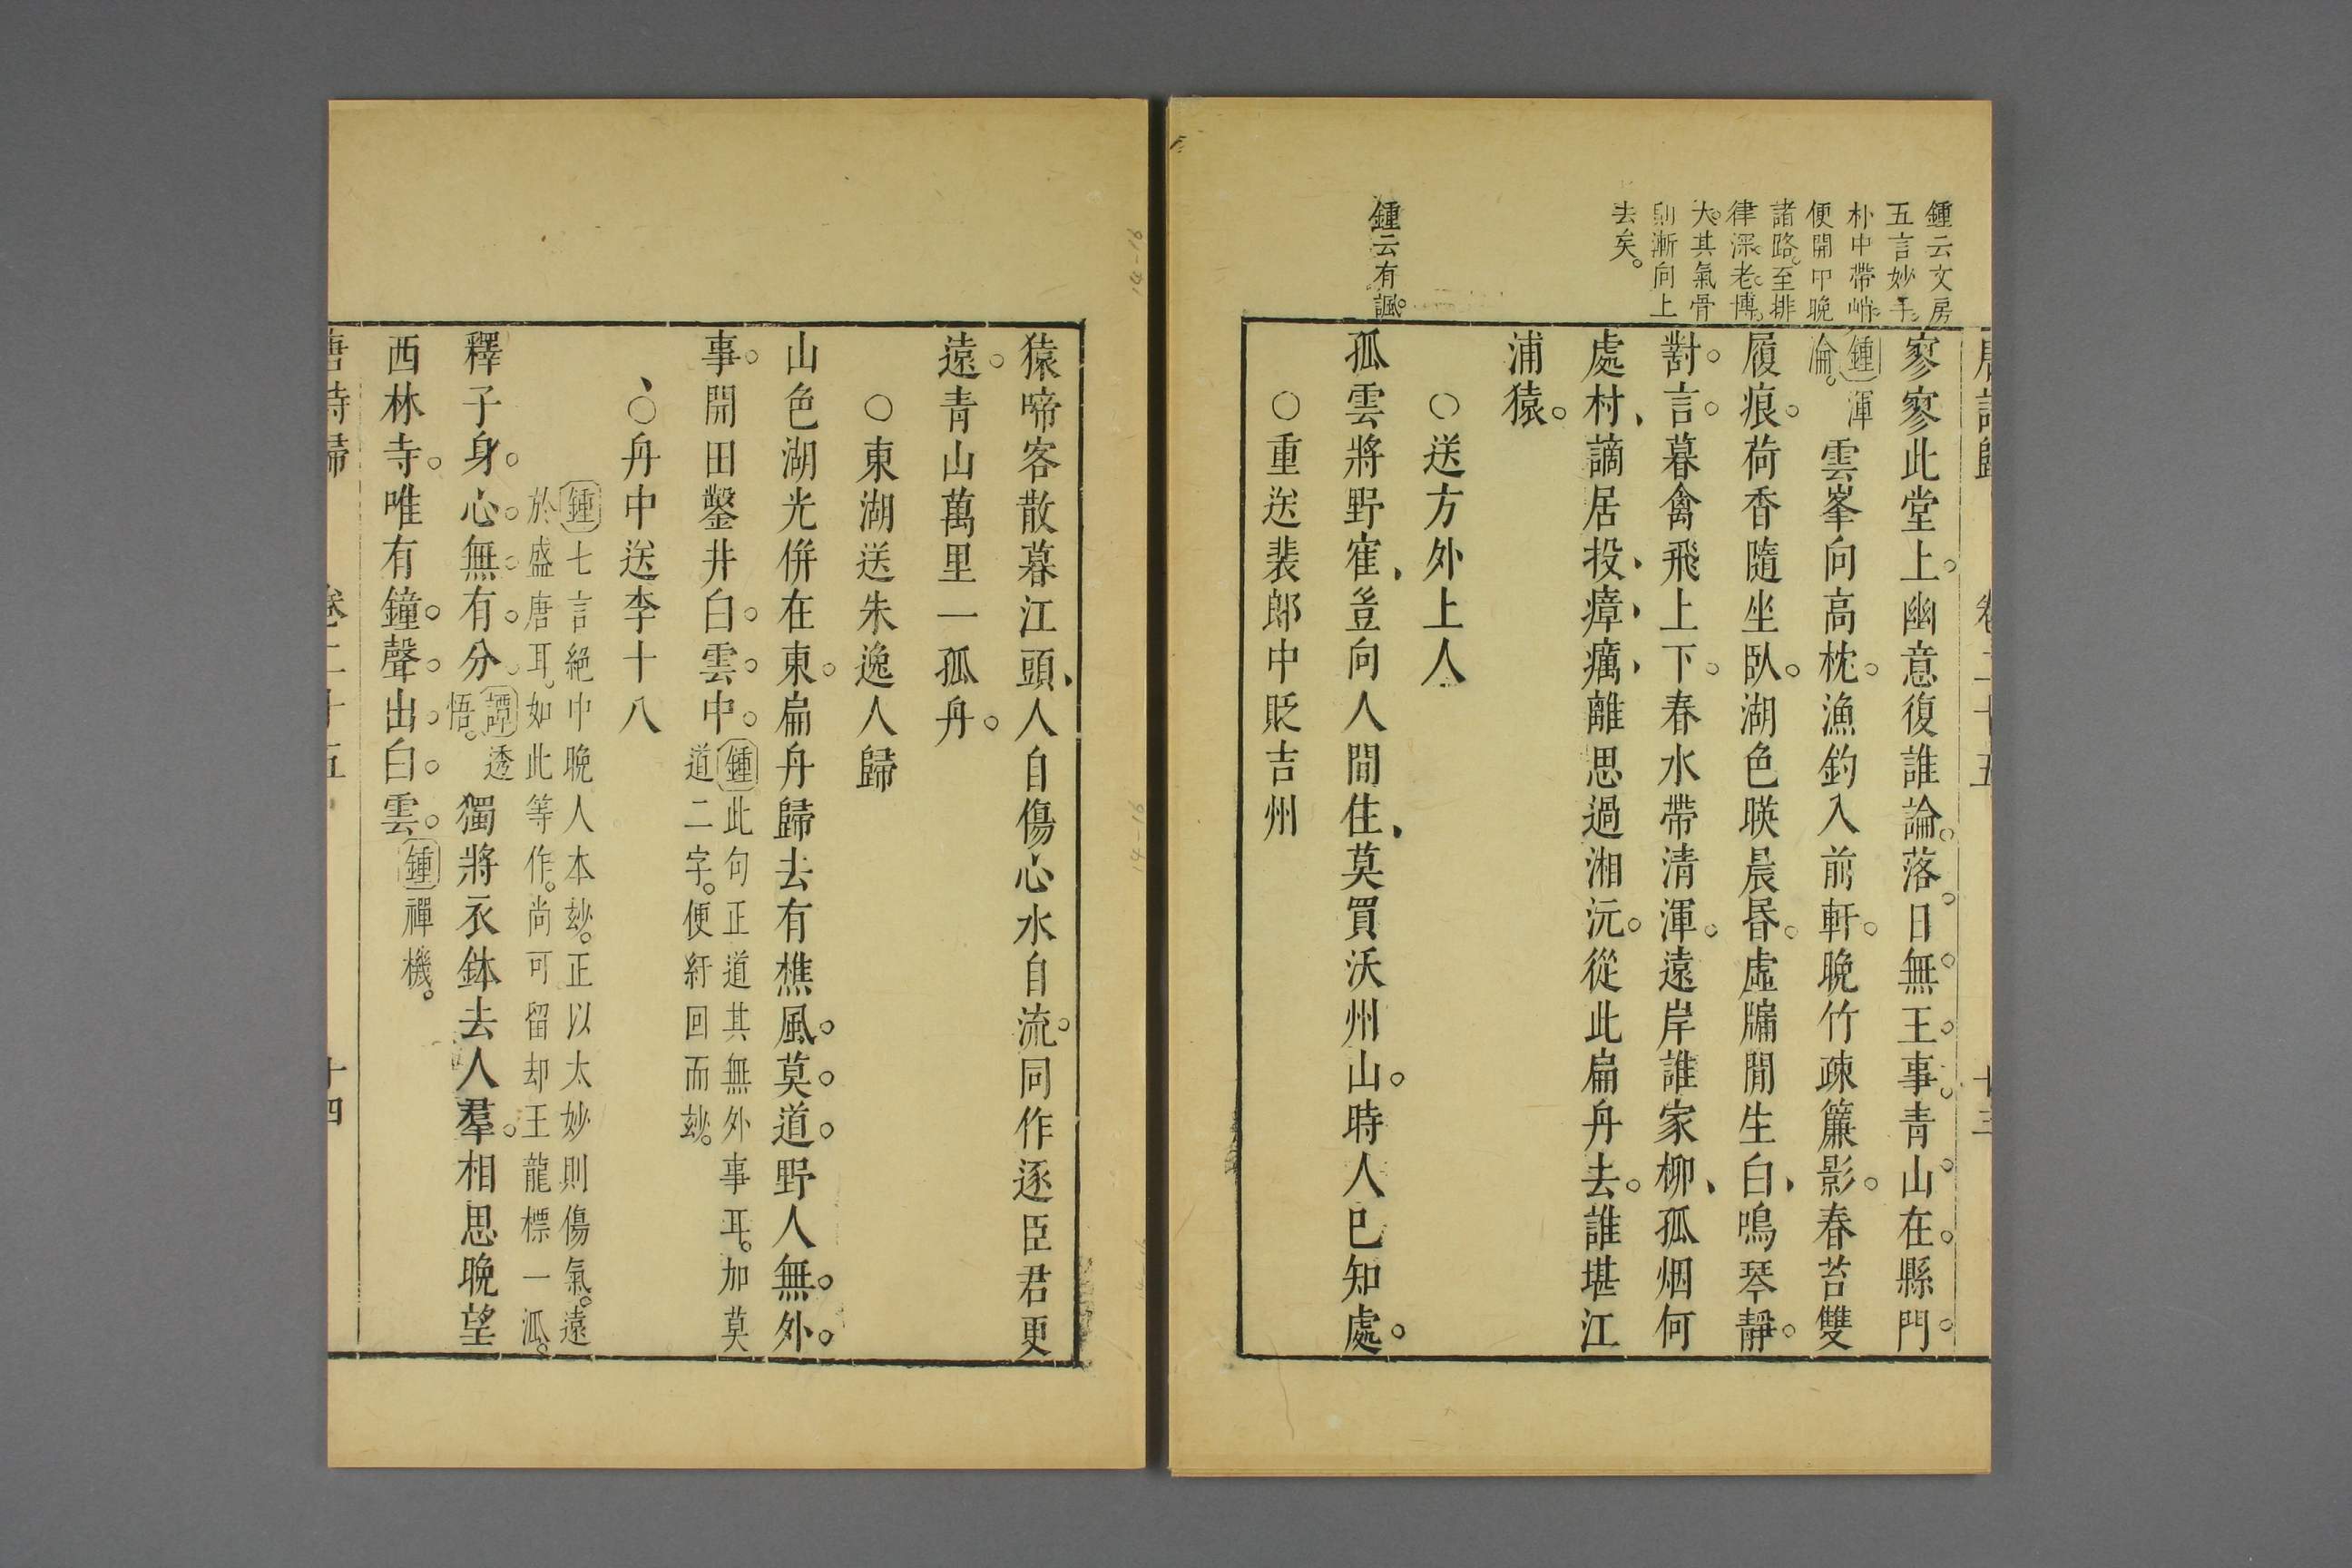 鍾云文房
五言妙手。
朴中帶峭。
便開中晚
諸路。至排
律深。老。博。
大。其氣骨
則漸向上
去矣。
鍾云有諷。
唐詩歸 卷二十五 十三
寥寥此堂上。幽意復誰論。落。日無王。事。青山。在。縣門。
鍾渾淪。雲峯向高枕。漁釣入前軒。晚竹疎簾影。春苔雙
履痕。荷香隨坐臥。湖色暎晨昏。虛牖閒生白、鳴琴靜。
對。言。暮禽飛上下。春水帶清渾。遠岸誰家柳、孤烟何
處村、謫居投、瘴、癘、離思過湘沅。從此扁舟去。誰堪江
浦猿。
○送方外上人
孤雲將野寉、豈向人間住、莫買沃州山。時人已知處。
○重送裴郎中貶吉州
猿啼客散暮江頭、人自傷心水自流。同作逐臣君更
遠。青山萬里一孤舟。
○東湖送朱逸人歸
山色湖光併在東。扁舟歸去有樵風。莫。道。野人無。外。
事。開田鑿井白。雲。中。鍾此句正道其無外事耳。加莫
道二字。便紆回而玅。
、○舟中送李十八
鍾七言絕中晚人本玅。正以太妙則傷氣。遠
於盛唐耳。如此等作。尚可留却王龍標一派。
釋子身。心。無。有。分。譚透悟。獨將衣鉢去人羣。相思晚望
西林寺。唯有鐘。聲。出。白。雲。鍾禪機。
唐詩歸 卷二十五 十四